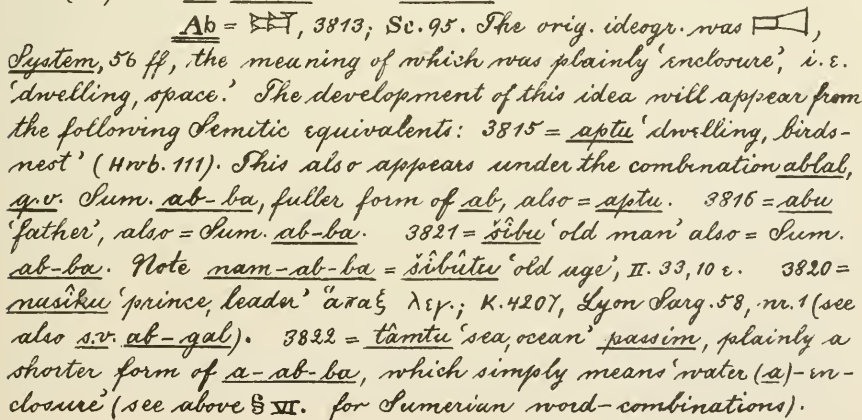 Ab = 𒀊, 3813; Sc. 95. The orig. ideogr. was ,
System, 56 ff, the meaning of which was plainly 'enclosure', i.e.
'dwelling, space.' The development of this idea will appear from
the following Semitic equivalents: 3815 = aptu 'dwelling, birds-
nest' (Hwb. 111). This also appears under the combination ablal,
q.v. Sum. ab-ba, fuller form of ab, also = aptu. 3816 = abu
'father', also = Sum. ab-ba. 3821 = šîbu 'old man' also = Sum.
ab-ba. Note nam-ab-ba = šîbûtu 'old age', II. 33, 10 e. 3820 =
nasîku 'prince, leader' ἅπαξ λεγ.; K. 4207, Lyon Sarg. 58, nr. 1 (see
also s.v. ab-gal). 3822 = tâmtu 'sea, ocean' passim, plainly a
shorter form of a-ab-ba, which simply means 'water (a)-en-
closure' (see above § VI. for Sumerian word-combinations).